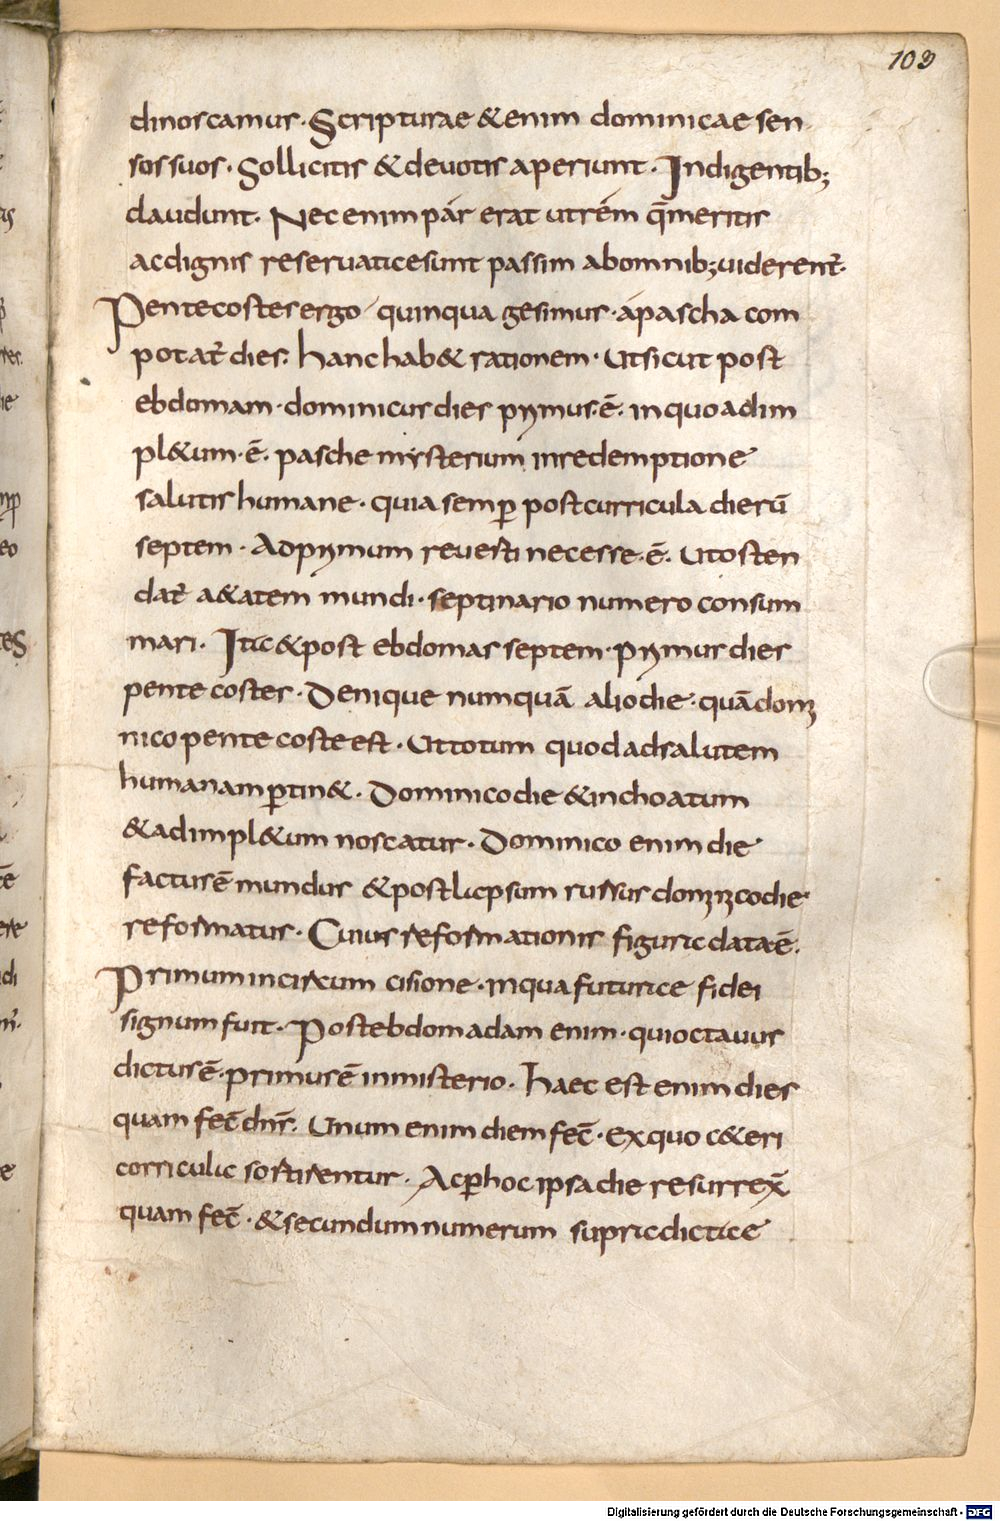 103
dinoscamus. Scripturae &enim dominicae sen
sos suos. Sollicitis & deuotis aperiunt. Indigentib;
claudunt. Nec enim pár erat ut rém q̄ meritis
ac dignis reseruatae sunt passim ab omnib; uiderent̄.
Pentecostes ergo quinqua gesimus. á pascha com
potat̄ dies. hanc hab& rationem. Ut sicut post
ebdomam. dominicus dies primus. ē. in quo adim
pl&um. ē. pasche misterium in redemptione
salutis humane. quia semꝑ post curricula dierū
septem. Ad primum reuesti necesse. ē. Ut osten
dat̄ a&atem mundi. septinario numero consum
mari. Ita & post ebdomas septem. primus dies
pente costes. Denique numquā alio die. quā domi
nico pente coste est. Ut totum quod ad salutem
humanam ꝑtin&. Dominico die & inchoatum
& adimpl&um noscatur. Dominico enim die
factus ē mundus & post lapsum rursus dominico die
reformatus. Cuius reformationis figura data ē.
Primum in circum cisione. in qua futurae fidei
signum fuit. Post ebdomadam enim. qui octauus
dictus ē. primus ē in misterio. haec est enim dies
quam fec̄ dn̄s. Unum enim diem fec̄. ex quo c&eri
corricula sortirentur. Ac ꝑ hoc ipsa die resurrex̄
quam fec̄. & secundum numerum supra dictae
Digitalisierung gefördert durch die Deutsche Forschungsgemeinschaft - DFG